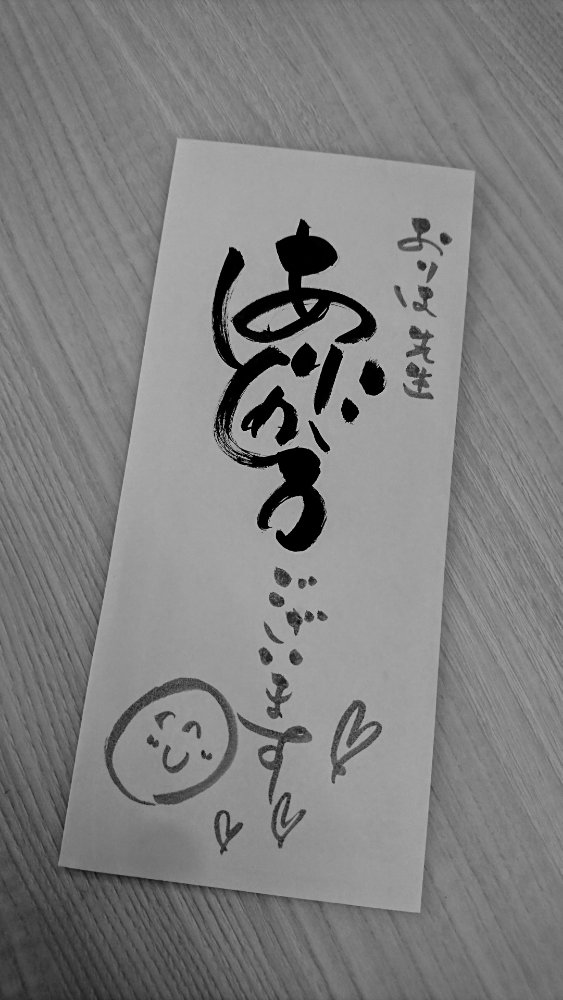 おりほ先生
ありがとう
ございます